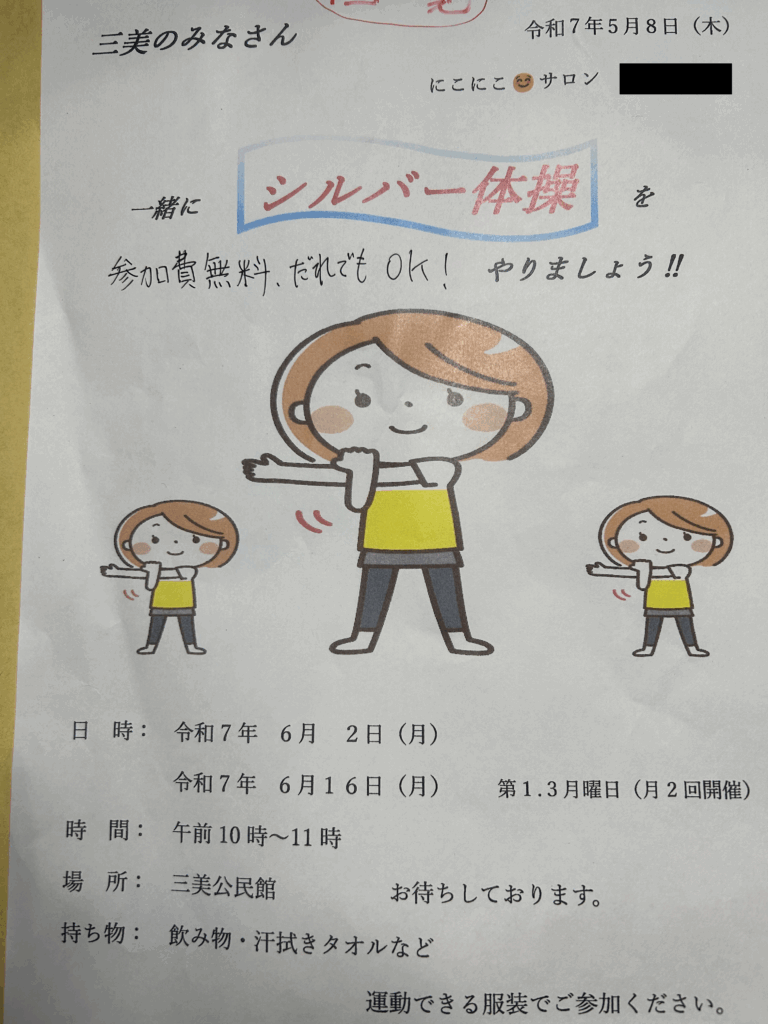 三美のみなさん
令和7年5月8日（木）
にこにこ😊サロン
一緒に シルバー体操 を
参加費無料、だれでもOK! やりましょう!!
日 時： 令和7年 6月 2日（月）
令和7年 6月16日（月） 第1.3月曜日（月2回開催）
時 間： 午前10時～11時
場 所： 三美公民館 お待ちしております。
持ち物： 飲み物・汗拭きタオルなど
運動できる服装でご参加ください。